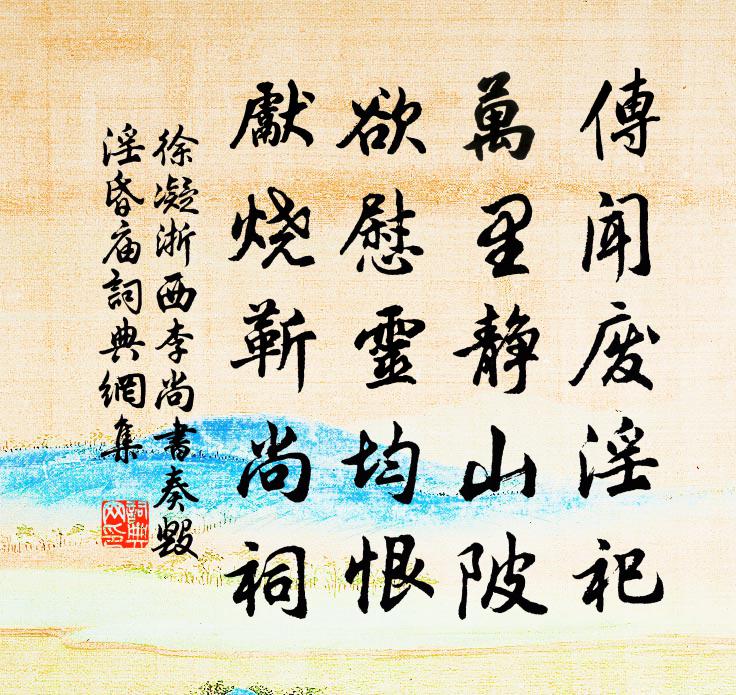 傳聞废淫祀
萬里静山陂
欲慰靈均恨
獻烧靳尚祠
徐凝浙西李尚書奏毀
淫昏庙詞典網集
詞典
网印